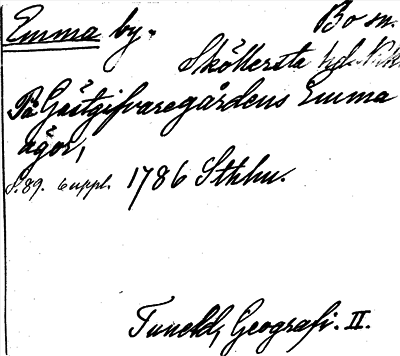 Emma by. Bo sn.
Sköllersta hd.
På Gästgifvaregårdens Emma
ägor,
S. 89. 6 uppl. 1786 Sthlm.
Tuneld, Geografi. II.